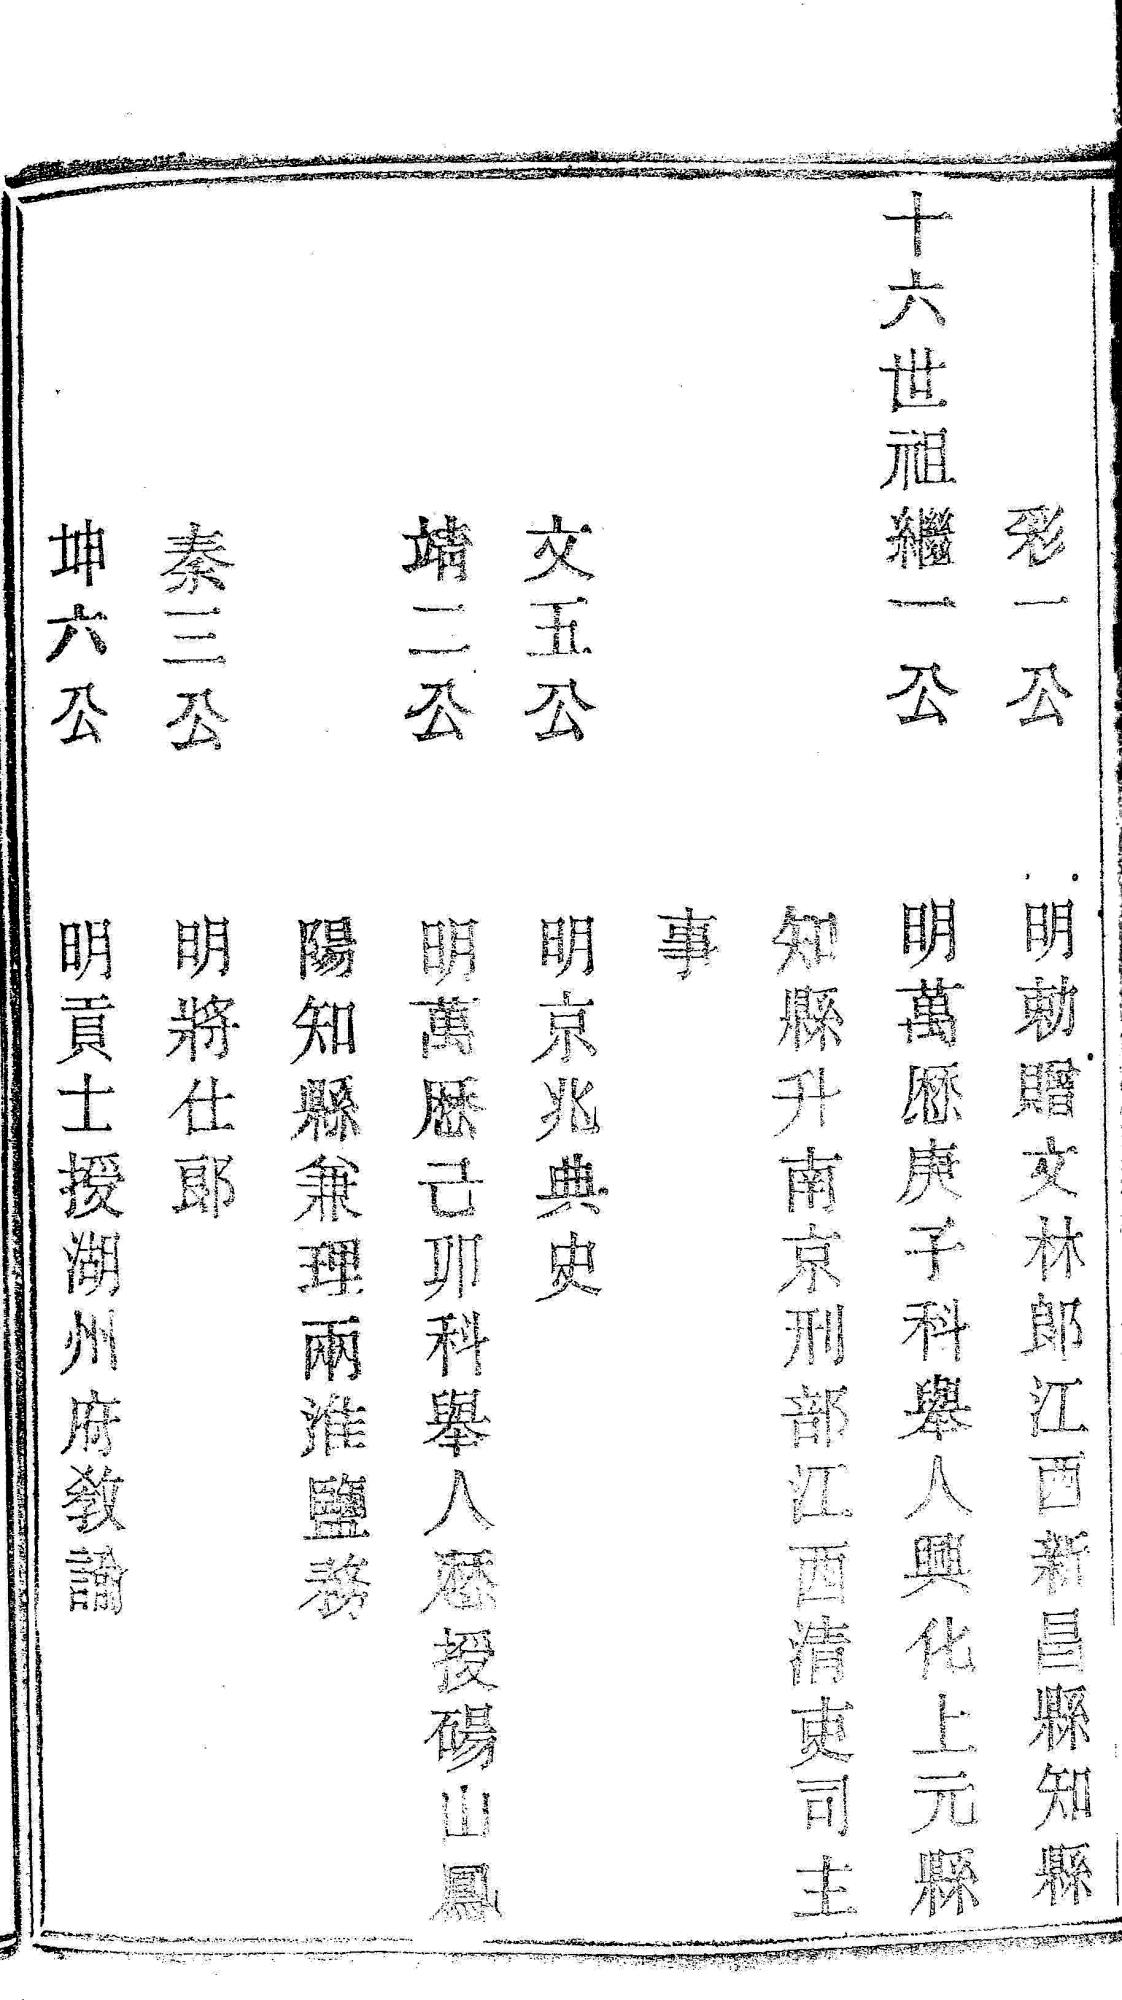 彩一公 明勅贈文林郎江西新昌縣知縣
十六世祖繼一公 明萬厯庚子科舉人興化上元縣
知縣升南京刑部江西清吏司主
事
文五公 明京兆典史
靖二公 明萬厯己卯科舉人厯授碭山鳳
陽知縣兼理兩淮鹽務
秦三公 明將仕郎
坤六公 明貢士授湖州府教諭